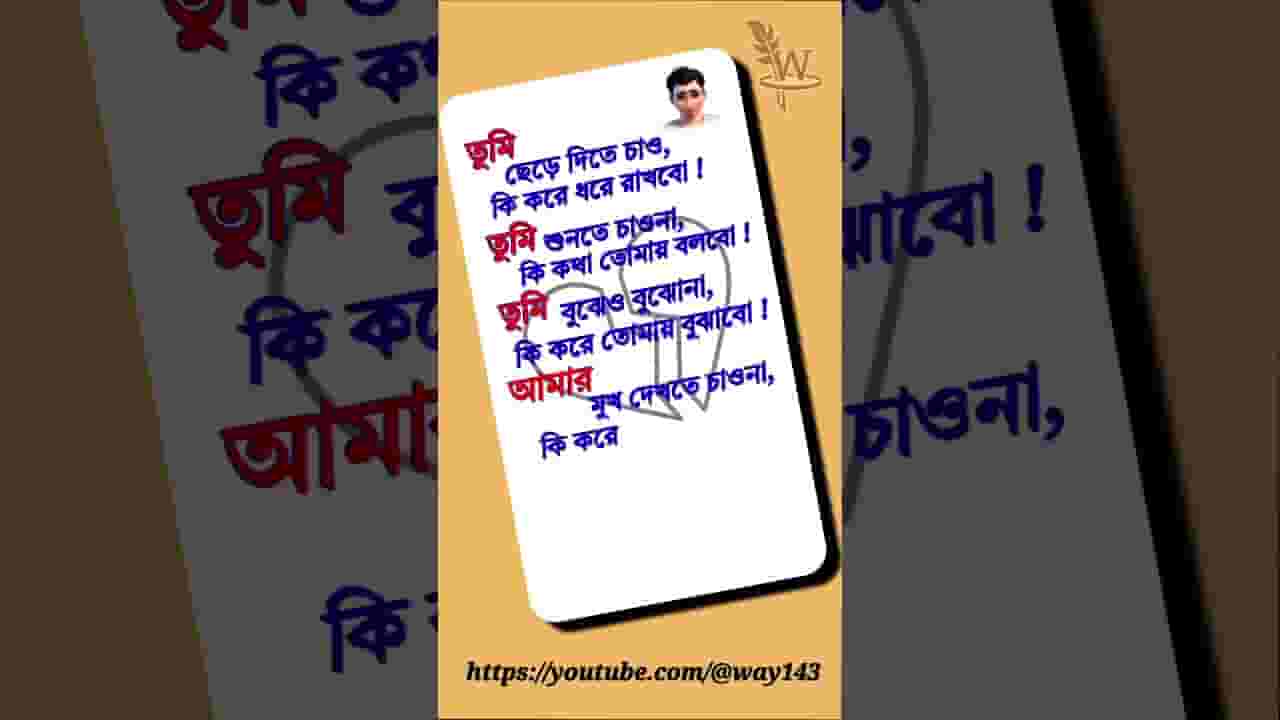 W
তুমি
ছেড়ে দিতে চাও,
কি করে ধরে রাখবো !
তুমি শুনতে চাওনা,
কি কথা তোমায় বলবো !
তুমি বুঝেও বুঝোনা,
কি করে তোমায় বুঝাবো !
আমার
মুখ দেখতে চাওনা,
কি করে
https://youtube.com/@way143